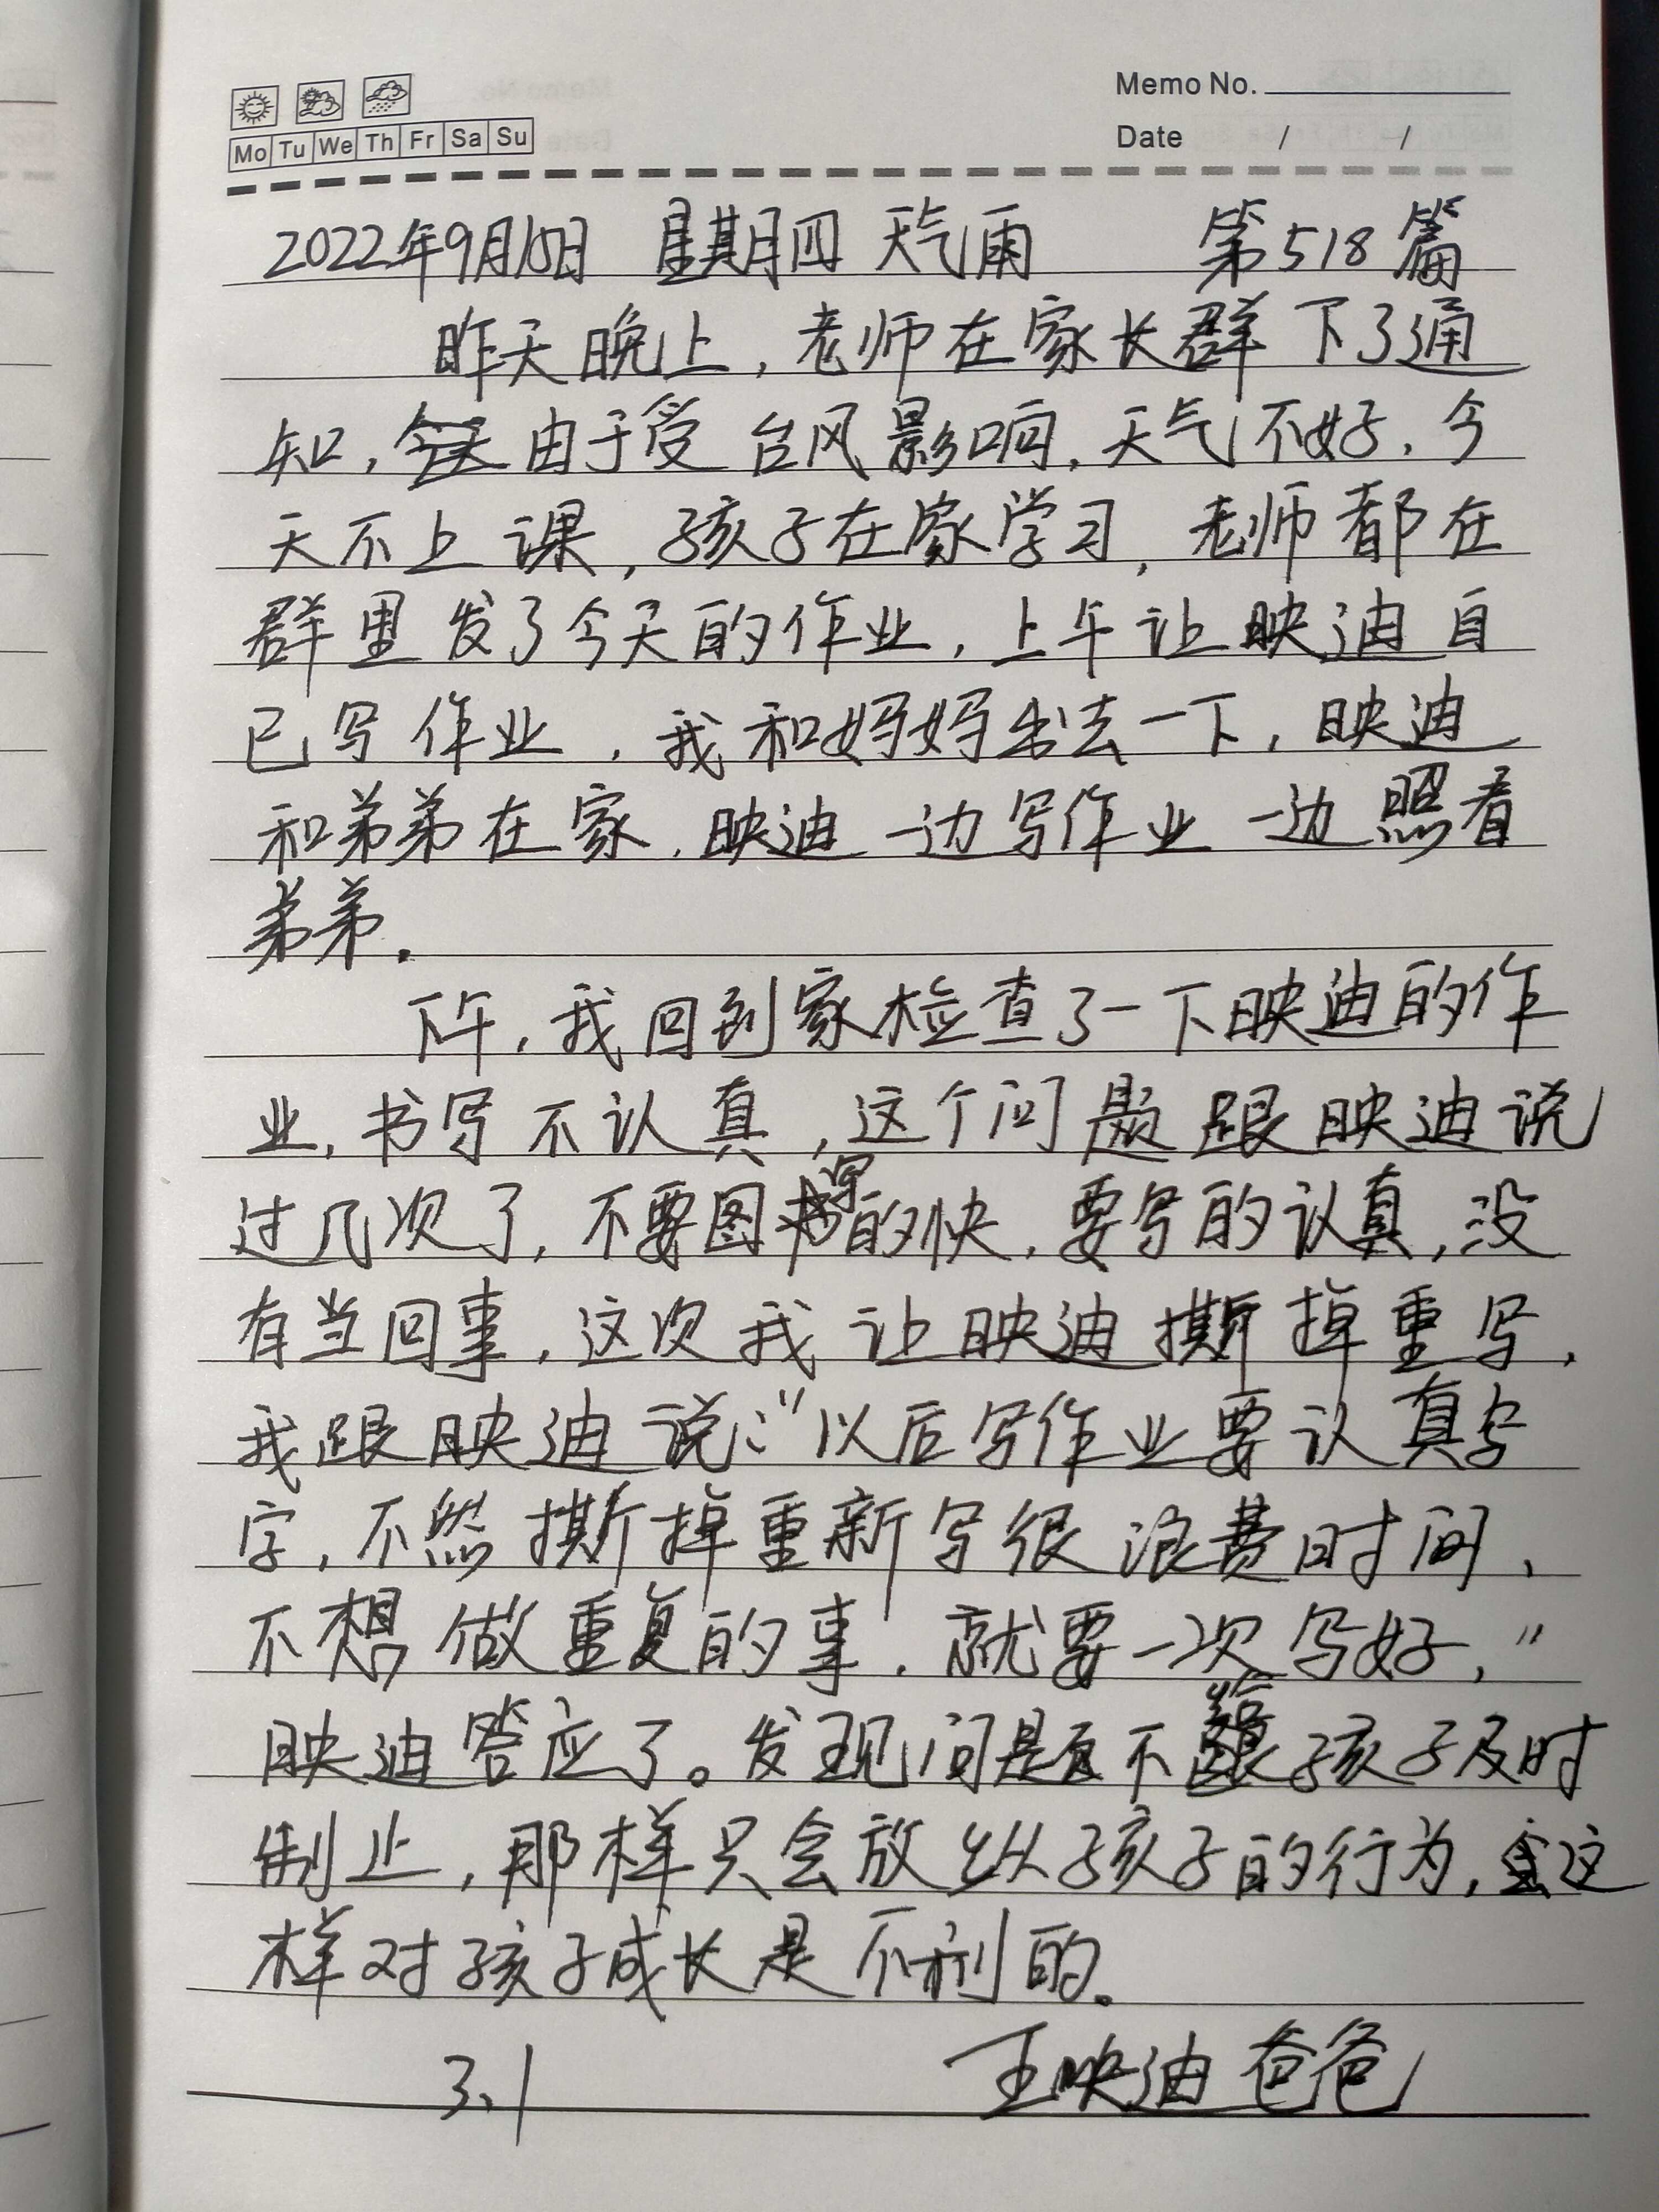 Memo No.
Mo Tu We Th Fr Sa Su
Date / /
2022年9月15日 星期四 天气雨 第518篇
昨天晚上,老师在家长群下了通
知,由于受台风影响,天气不好,今
天不上课,孩子在家学习,老师都在
群里发了今天的作业,上午让映迪自
已写作业,我和妈妈出去一下,映迪
和弟弟在家,映迪一边写作业一边照看
弟弟。
下午,我回到家检查了一下映迪的作
业,书写不认真,这个问题跟映迪说
过几次了,不要图写的快,要写的认真,没
有当回事,这次我让映迪撕掉重写,
我跟映迪说:“以后写作业要认真写
字,不然撕掉重新写很浪费时间,
不想做重复的事,就要一次写好,”
映迪答应了。发现问题不给孩子及时
制止,那样只会放纵孩子的行为,这
样对孩子成长是不利的。
3.1 王映迪爸爸